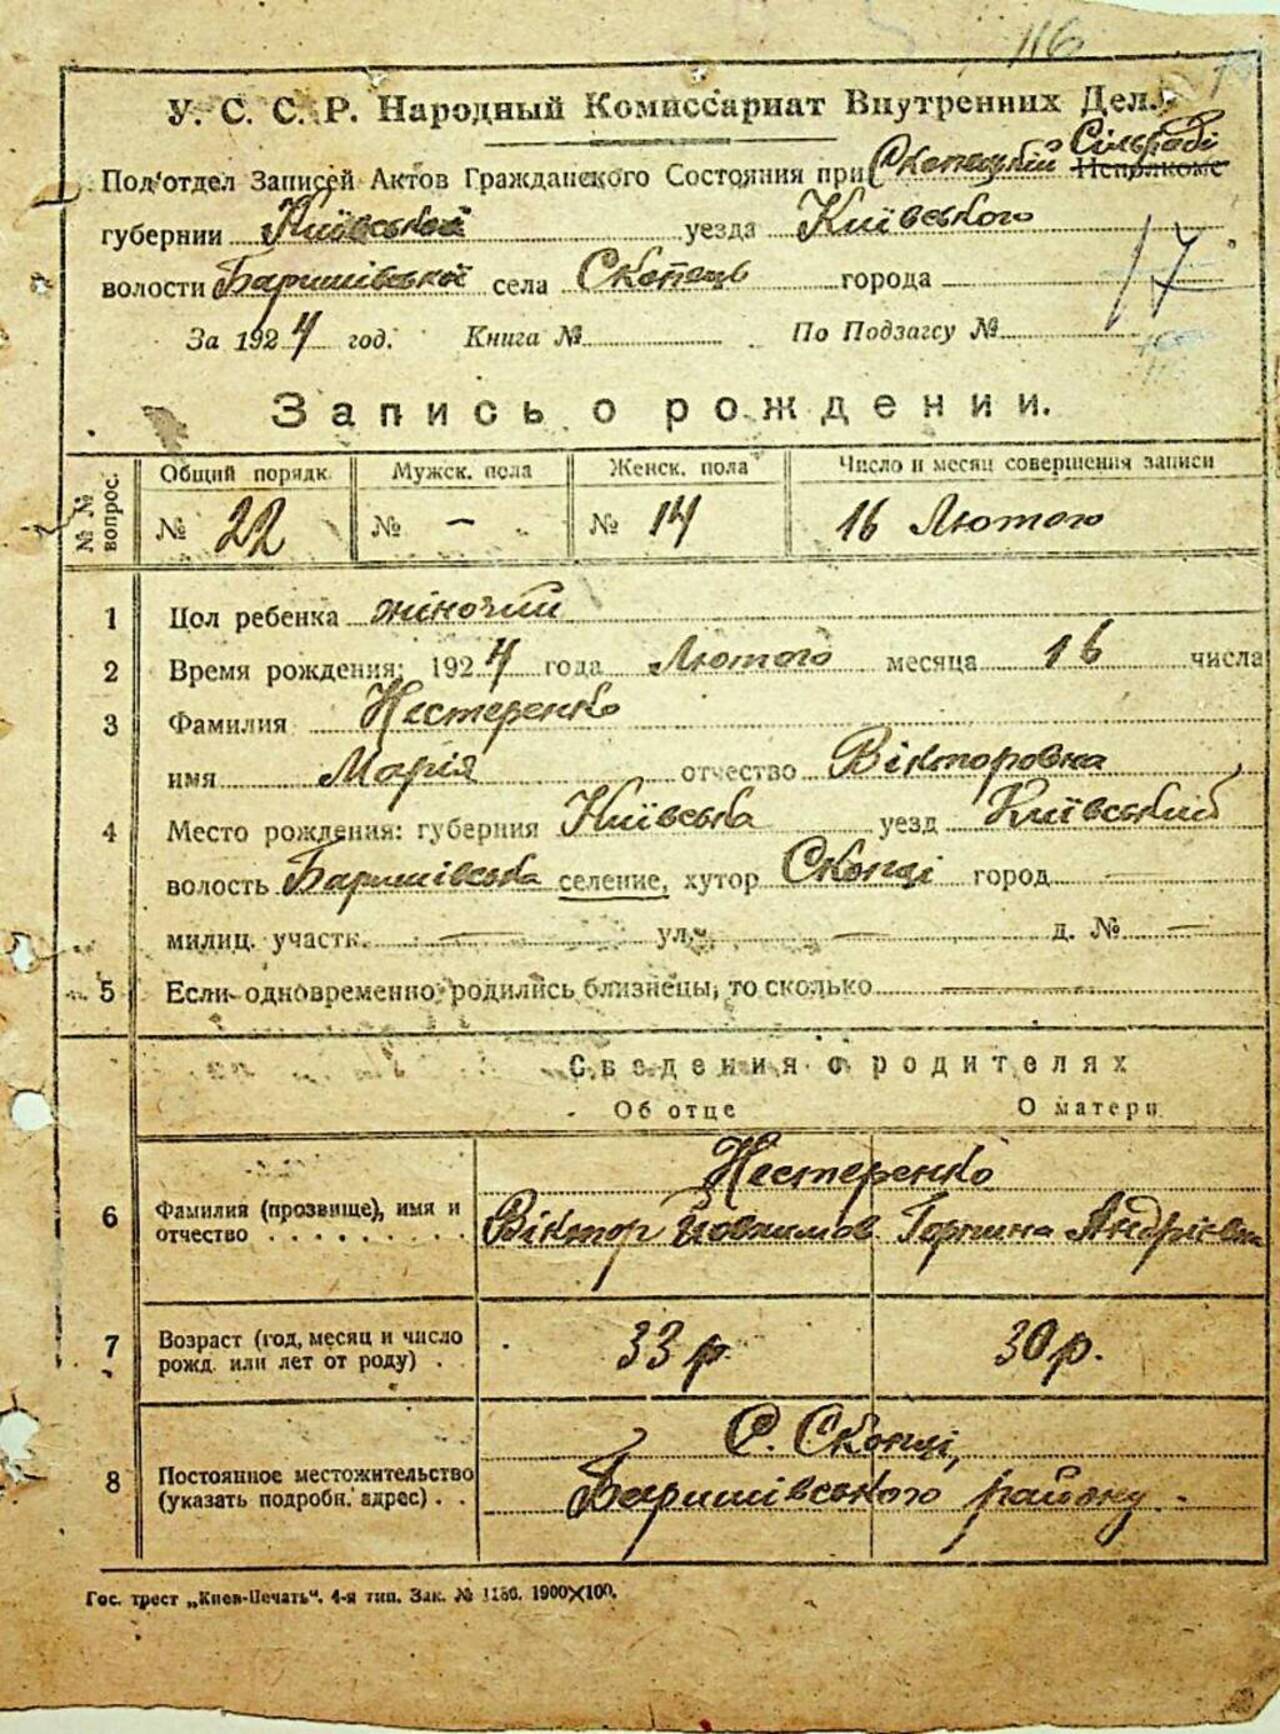 116
У. С. С. Р. Народный Комиссариат Внутренних Дел.
Сільраді
Под'отдел Записей Актов Гражданского Состояния при Скопецькій Исполкоме
губернии Київської уезда Київського
волости Баришівської села Скопець города
17
За 1924 год. Книга № По Подзагсу №
Запись о рождении.
№№ вопрос. Общий порядк. Мужск. пола Женск. пола Число и месяц совершения записи
№ 22 № — № 14 16 Лютого
1 Пол ребенка жіночий
2 Время рождения: 1924 года Лютого месяца 16 числа
3 Фамилия Нестеренко
имя Марія отчество Вікторовна
4 Место рождения: губерния Київська уезд Київський
волость Баришівська селение, хутор Скопці город —
милиц. участк. — ул. — д. № —
5 Если одновременно родились близнецы, то сколько —
Сведения о родителях
Об отце О матери
Нестеренко
6 Фамилия (прозвище), имя и
отчество . . . . . . . . . Віктор Йовхимов. Горпина Андріевна
7 Возраст (год, месяц и число
рожд. или лет от роду) . . 33 р. 30 р.
С. Скопці,
8 Постоянное местожительство
(указать подробн. адрес) . . Баришівського району.
Гос. трест „Киев-Печать“. 4-я тип. Зак. № 1186. 1900X100.